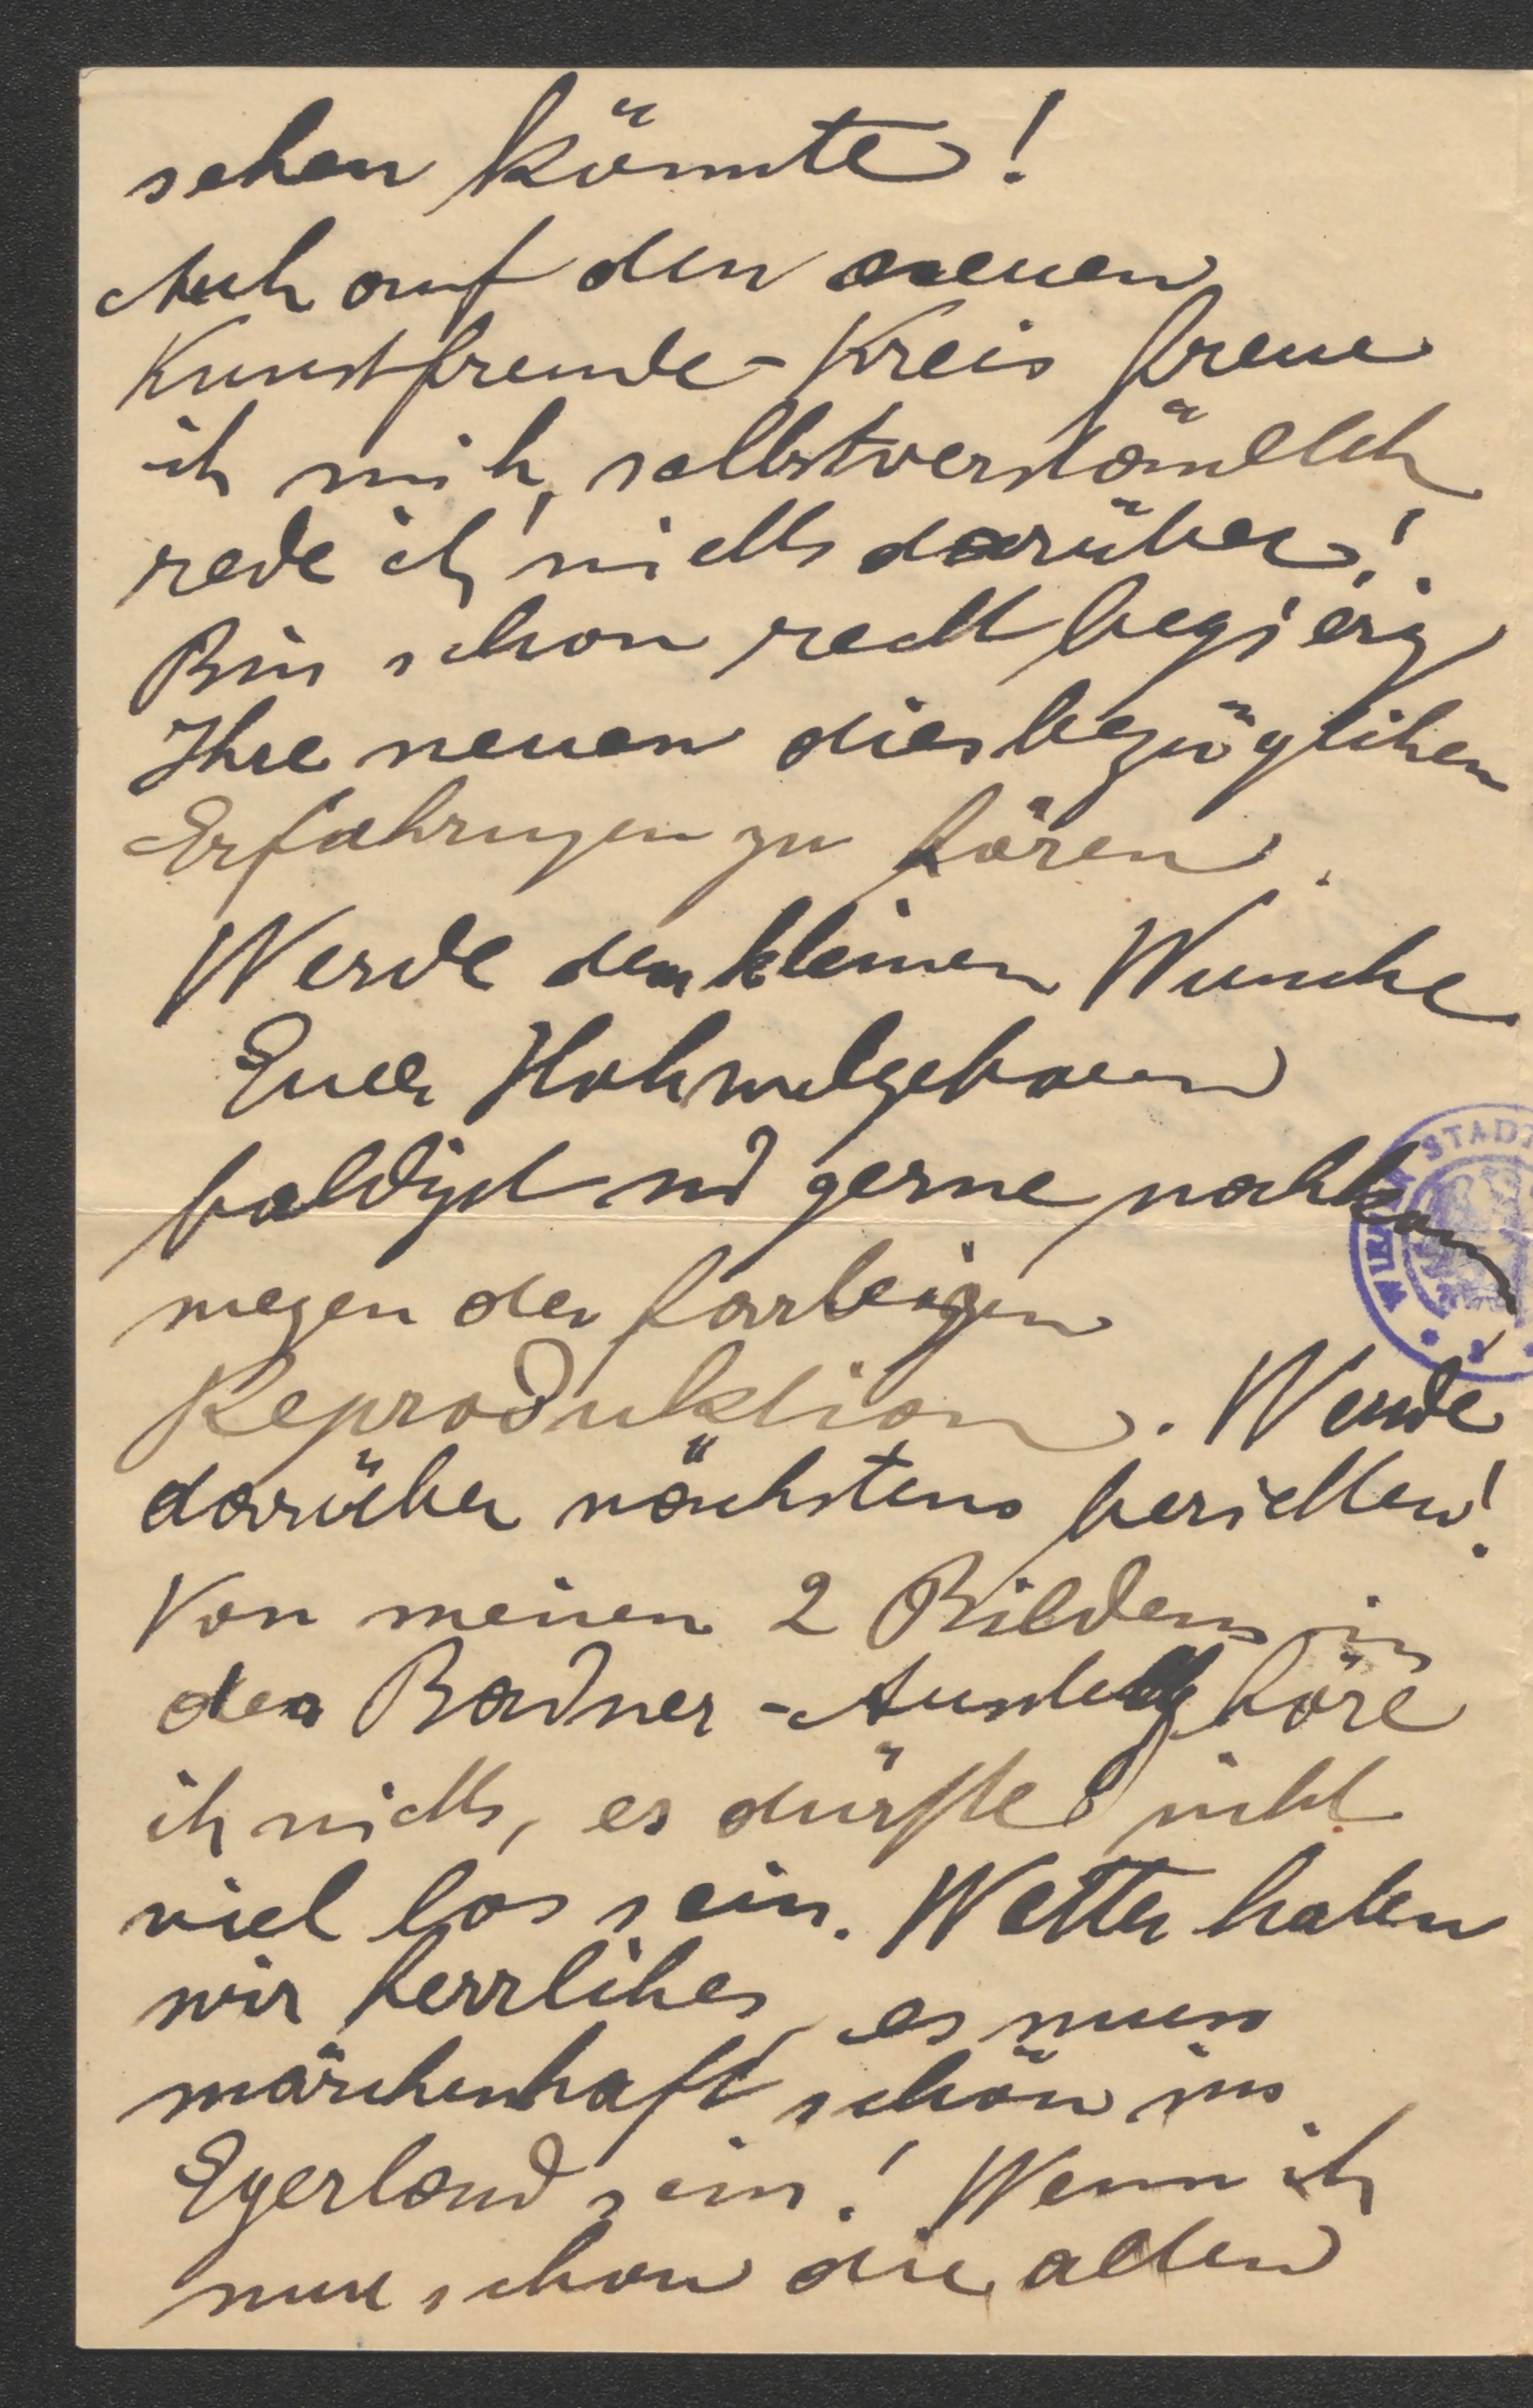 sehen könnte!
Auch auf den neuen
Kunstfreunde-Kreis freue
ich mich, selbstverständlich
rede ich nichts darüber!
Bin schon recht begierig
Ihre neuen diesbezüglichen
Erfahrungen zu hören.
Werde dem kleinen Wunsche
Euer Hochwolgeboren
baldigst und gerne nachkommen
wegen der farbigen
Reproduktion. Werde
darüber nächstens berichten!
Von meinen 2 Bildern in
der Badner-Ausstellg höre
ich nichts, es dürfte nicht
viel los sein. Wetter haben
wir herrliches, es muss
märchenhaft schön im
Egerland sein! Wenn ich
nur schon die alten
WIENER STADT